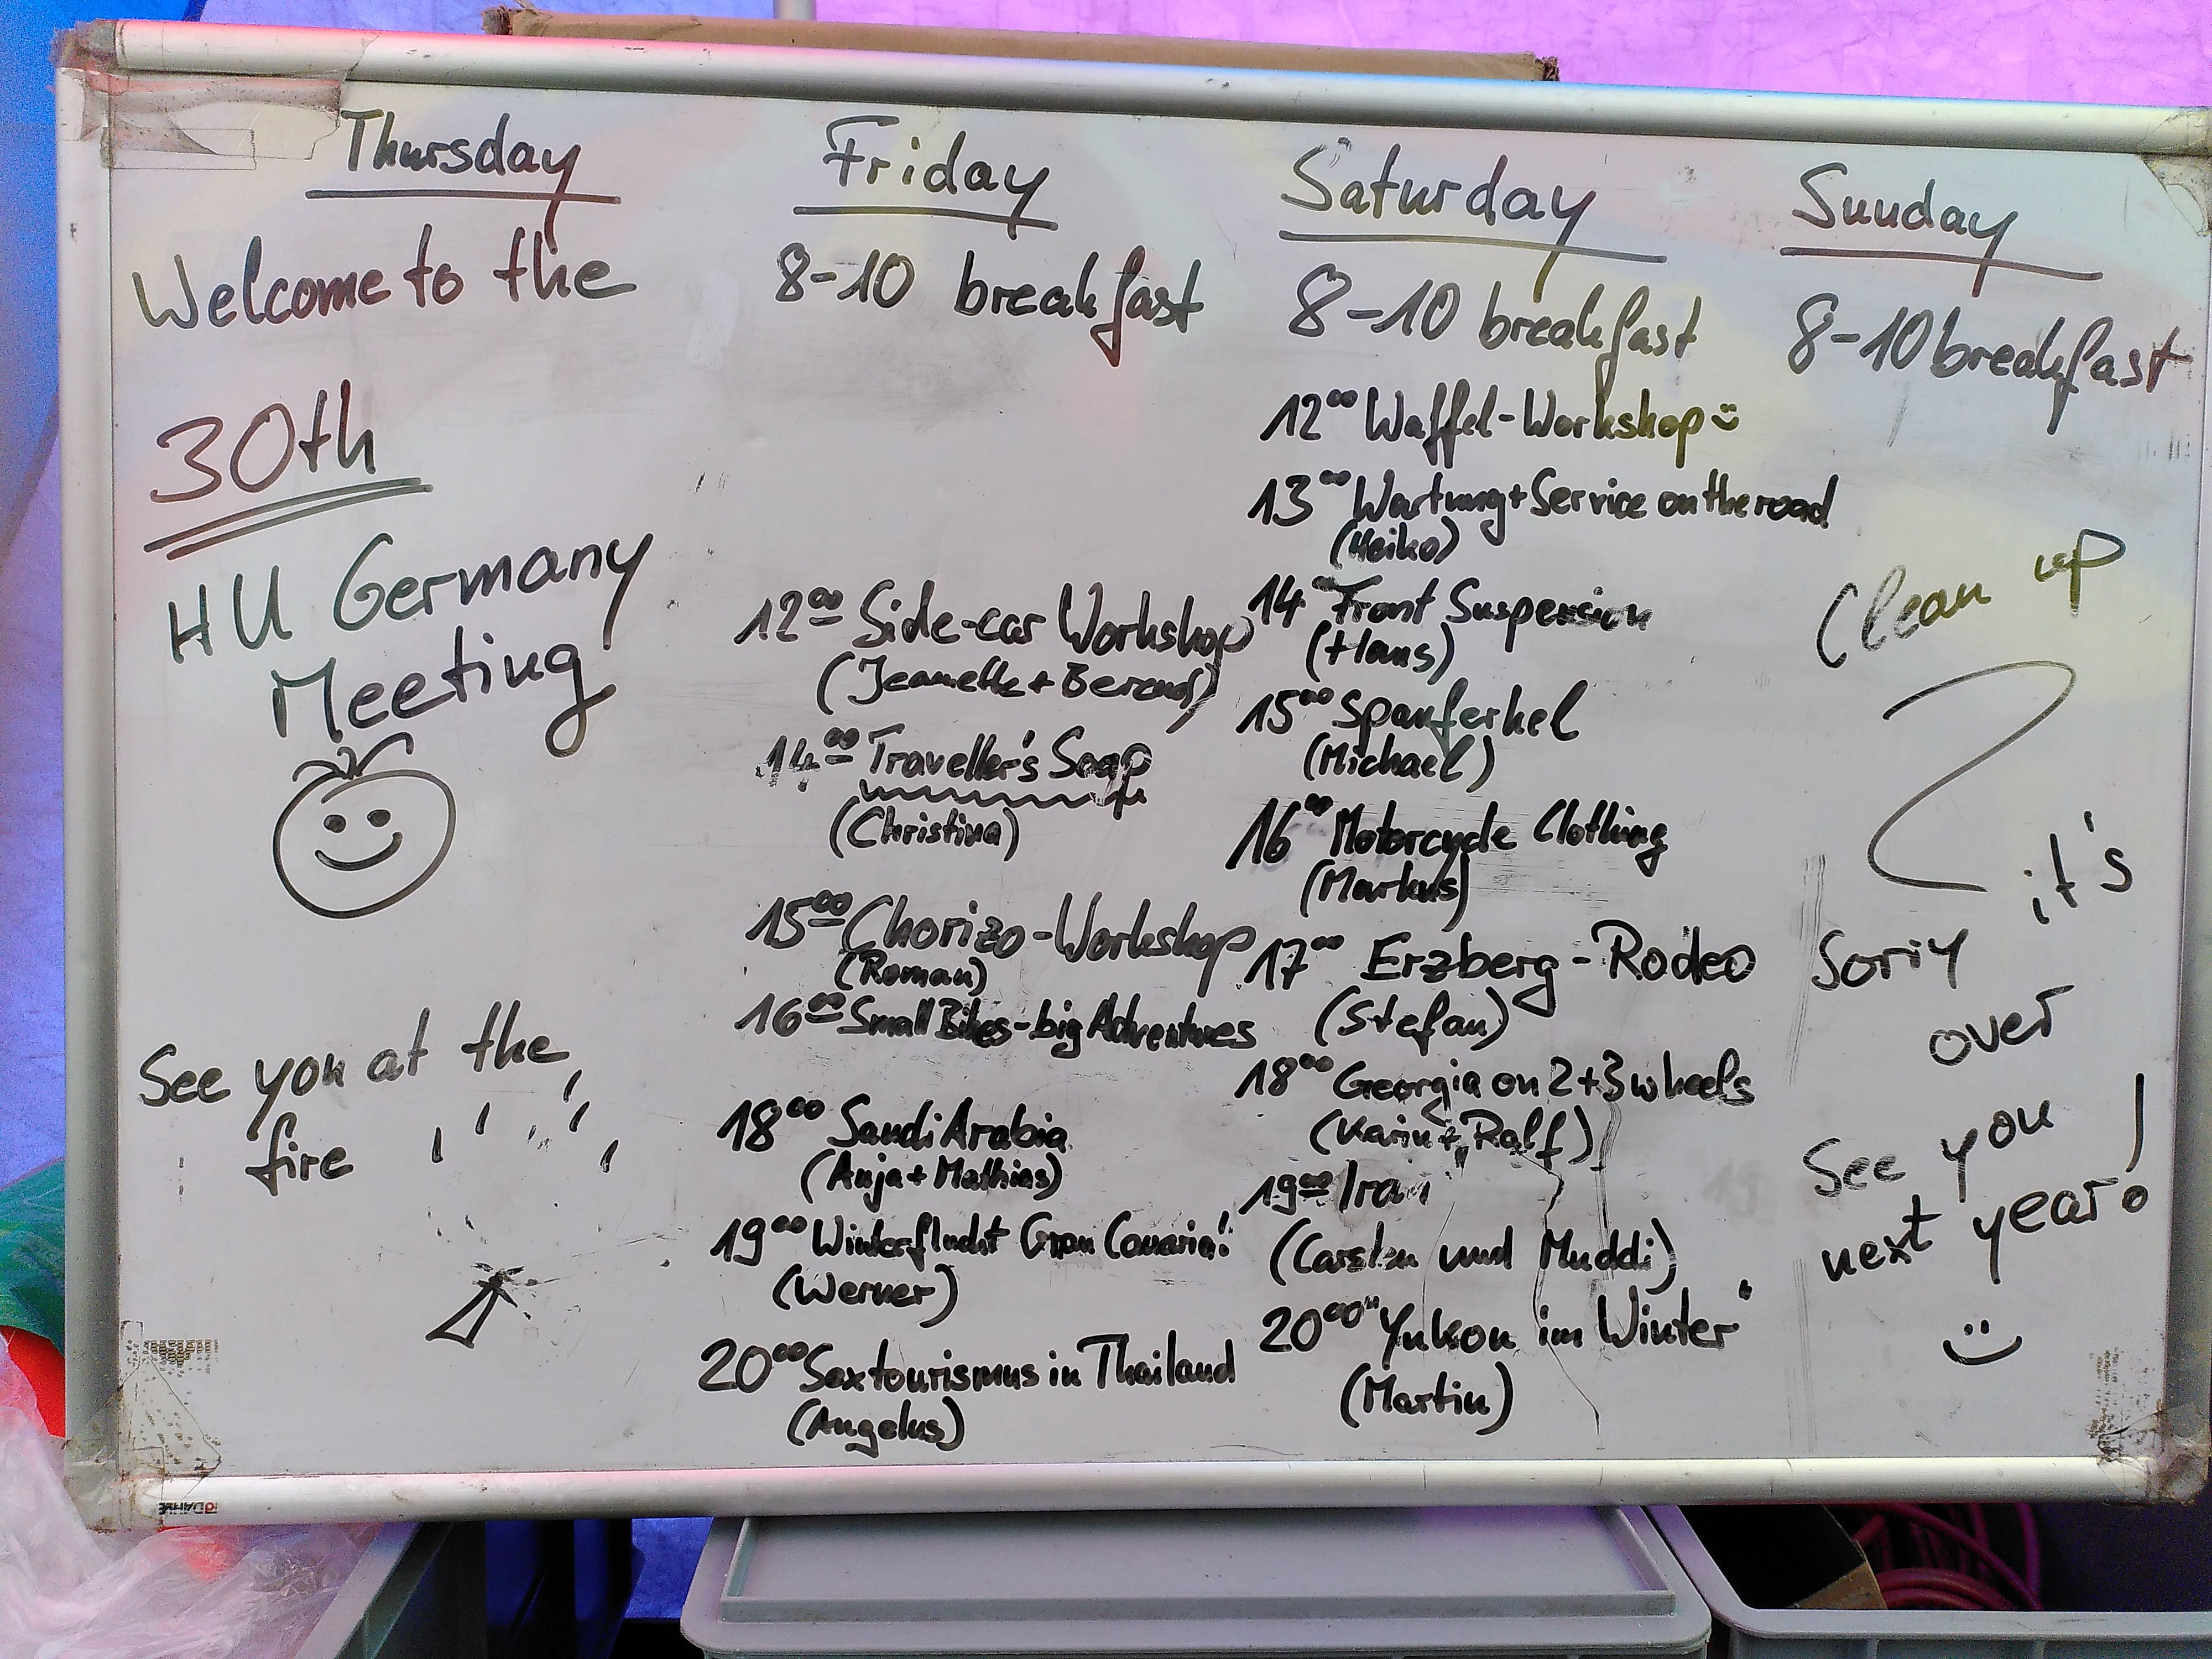 Thursday
Welcome to the
30th
HU Germany
Meeting
See you at the
fire
Friday
8-10 breakfast
12⁰⁰ Side-car Workshop
(Jeanette +
14⁰⁰ Traveller's Soap
(Christina)
15⁰⁰ Chorizo-Workshop
(Roman)
16⁰⁰ Small Bikes - big Adventures
18⁰⁰ Saudi Arabia
(Anja + Mathias)
19⁰⁰ Winterflucht Gran Canaria!
(Werner)
20⁰⁰ Sextourismus in Thailand
(Angelus)
Saturday
8-10 breakfast
12⁰⁰ Waffel-Workshop
13⁰⁰ Wartung + Service on the road
(Heiko)
14⁰⁰ Front Suspension
(Hans)
15⁰⁰ Spanferkel
(Michael)
16⁰⁰ Motorcycle Clothing
(Markus)
17⁰⁰ Erzberg-Rodeo
(Stefan)
18⁰⁰ Georgia on 2+3 wheels
(Karin + Ralf)
19⁰⁰ Iran
(Carsten und Muddi)
20⁰⁰ "Yukon im Winter"
(Martin)
Sunday
8-10 breakfast
Clean up
Sorry it's
over
See you
next year!